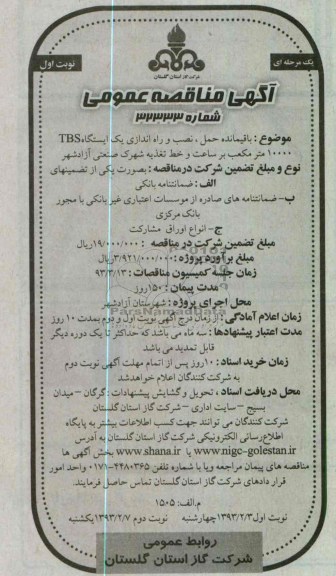 یک مرحله ای
نوبت اول
شرکت گاز استان گلستان
آگهی مناقصه عمومی
شماره ۳۲۳۳۳
موضوع : باقیمانده حمل ، نصب و راه اندازی یک ایستگاه TBS
۱۰۰۰۰ متر مکعب بر ساعت و خط تغذیه شهرک صنعتی آزادشهر
نوع و مبلغ تضمین شرکت در مناقصه : بصورت یکی از تضمینهای
الف : ضمانتنامه بانکی
ب- ضمانتنامه های صادره از موسسات اعتباری غیر بانکی با مجوز
بانک مرکزی
ج- انواع اوراق مشارکت
مبلغ تضمین شرکت در مناقصه : ۱۹/۰۰۰/۰۰۰ ریال
مبلغ برآورد پروژه : ۳/۹۲۱/۰۰۰/۰۰۰ ریال
زمان جلسه کمیسیون مناقصات : ۹۳/۳/۱۳
مدت پیمان : ۱۵۰ روز
محل اجرای پروژه : شهرستان آزادشهر
زمان اعلام آمادگی : از زمان درج آگهی نوبت اول و دوم بمدت ۱۰ روز
مدت اعتبار پیشنهادها : سه ماه می باشد که حداکثر تا یک دوره دیگر
قابل تمدید می باشد
زمان خرید اسناد : ۱۰ روز پس از اتمام مهلت آگهی نوبت دوم
به شرکت کنندگان اعلام خواهد شد
محل دریافت اسناد ، تحویل و گشایش پیشنهادات : گرگان - میدان
بسیج - سایت اداری - شرکت گاز استان گلستان
شرکت کنندگان می توانند جهت کسب اطلاعات بیشتر به پایگاه
اطلاع رسانی الکترونیکی شرکت گاز استان گلستان به آدرس
www.nigc-golestan.ir یا www.shana.ir بخش آگهی ها
مناقصه های پیمان مراجعه و یا با شماره تلفن ۴۴۸۰۳۶۵-۰۱۷۱ واحد امور
قرار دادهای شرکت گاز استان گلستان تماس حاصل فرمایند.
م.الف: ۱۵۰۵
نوبت اول ۱۳۹۳/۲/۳ چهارشنبه نوبت دوم ۱۳۹۳/۲/۷ یکشنبه
روابط عمومی
شرکت گاز استان گلستان